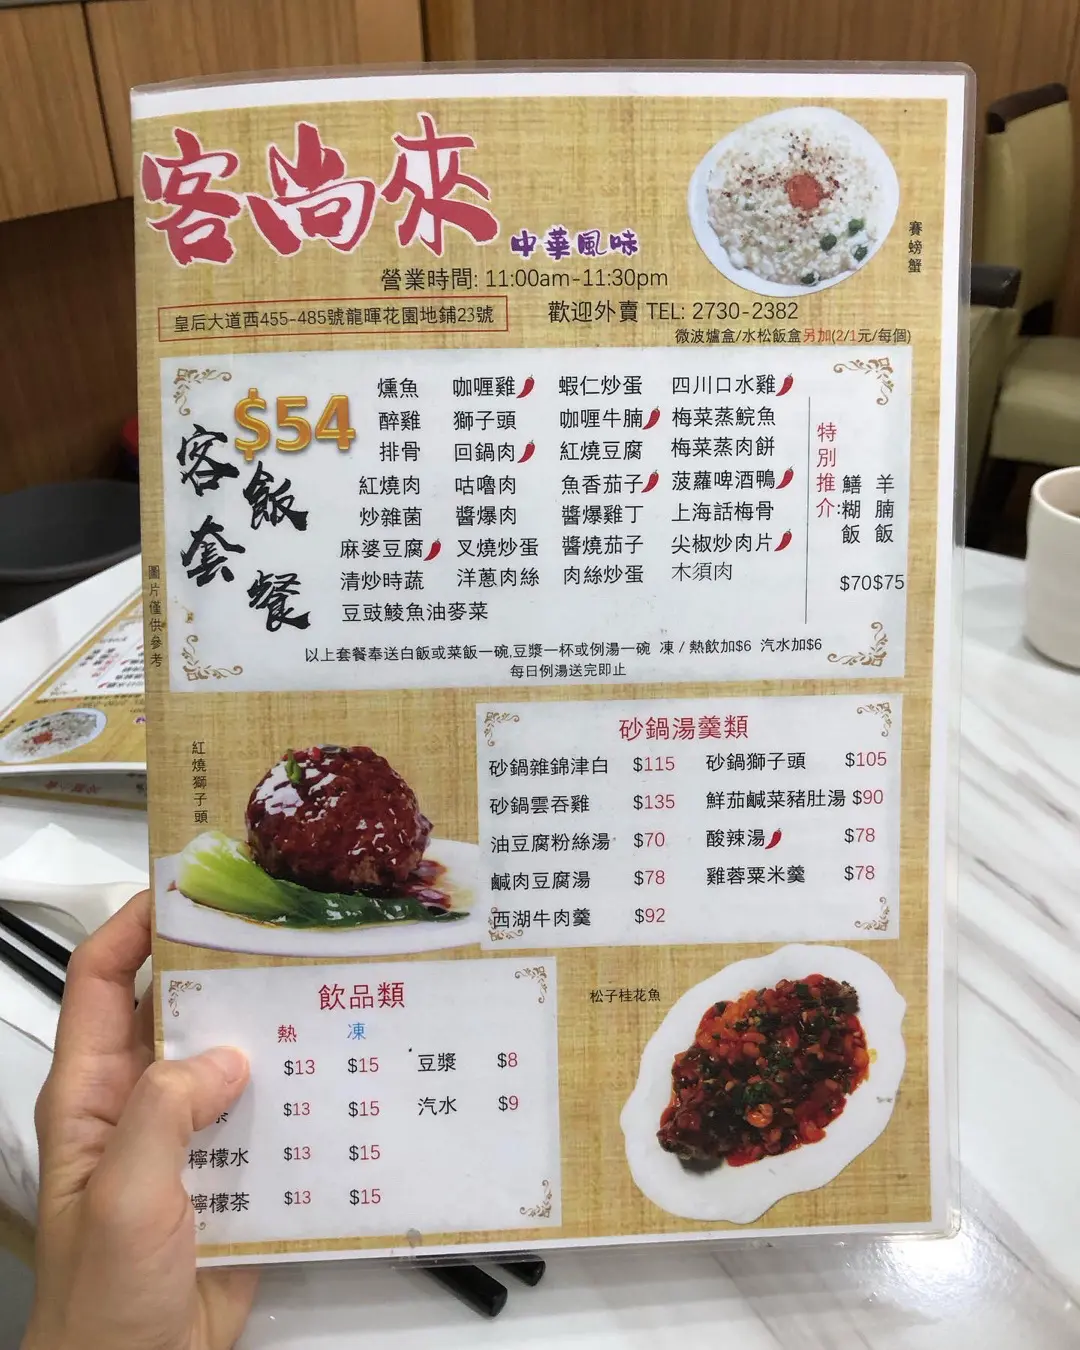 客尚來
中華風味
營業時間: 11:00am-11:30pm
皇后大道西455-485號龍暉花園地鋪23號
歡迎外賣 TEL: 2730-2382
微波爐盒/水松飯盒另加(2/1元/每個)
賽螃蟹
客飯套餐
$54
燻魚 咖喱雞 蝦仁炒蛋 四川口水雞
醉雞 獅子頭 咖喱牛腩 梅菜蒸鯇魚
排骨 回鍋肉 紅燒豆腐 梅菜蒸肉餅
紅燒肉 咕嚕肉 魚香茄子 菠蘿啤酒鴨
炒雜菌 醬爆肉 醬爆雞丁 上海話梅骨
麻婆豆腐 叉燒炒蛋 醬燒茄子 尖椒炒肉片
清炒時蔬 洋蔥肉絲 肉絲炒蛋 木須肉
豆豉鯪魚油麥菜
特別推介:
鱔糊飯
羊腩飯
$70 $75
以上套餐奉送白飯或菜飯一碗,豆漿一杯或例湯一碗 凍 / 熱飲加$6 汽水加$6
每日例湯送完即止
圖片僅供參考
紅燒獅子頭
砂鍋湯羹類
砂鍋雜錦津白 $115 砂鍋獅子頭 $105
砂鍋雲吞雞 $135 鮮茄鹹菜豬肚湯 $90
油豆腐粉絲湯 $70 酸辣湯 $78
鹹肉豆腐湯 $78 雞蓉粟米羹 $78
西湖牛肉羹 $92
飲品類
熱 凍
$13 $15 豆漿 $8
茶 $13 $15 汽水 $9
檸檬水 $13 $15
檸檬茶 $13 $15
松子桂花魚